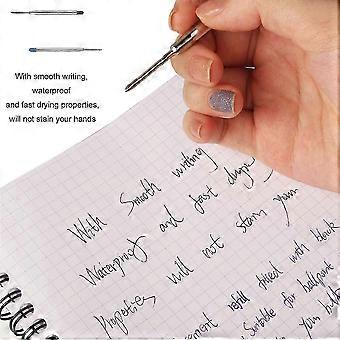 With smooth writing,
waterproof
and fast drying properties,
will not stain your hands
With Smooth writing
Waterproof and fast drying
Properties, will not stain your
refill filled with black
Suitable for ballpoint
your